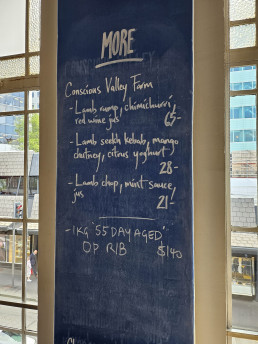 MORE
Conscious Valley Farm
- Lamb rump, chimichurri,
red wine jus 65-
- Lamb seekh kebab, mango
chutney, citrus yoghurt
28-
- Lamb chop, mint sauce,
jus 21-
- 1KG 55 DAY AGED
OP RIB $140